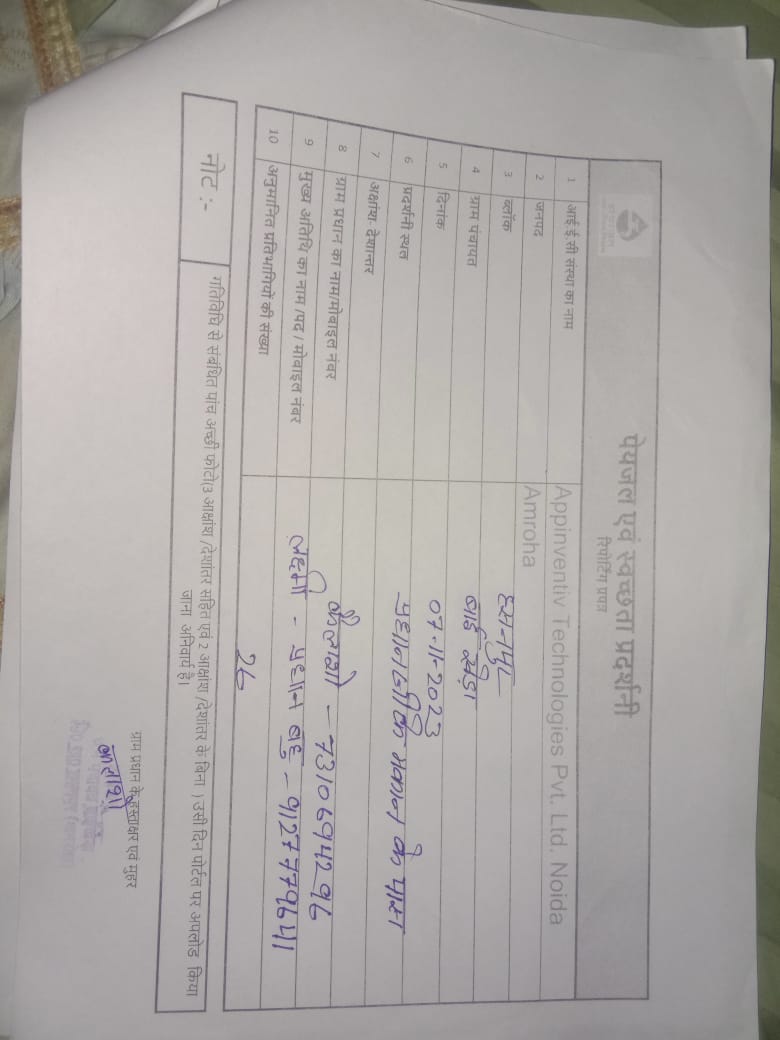 पेयजल एवं स्वच्छता प्रदर्शनी
रिपोर्टिंग प्रपत्र
1 आई.ई.सी संस्था का नाम Appinventiv Technologies Pvt. Ltd. Noida
2 जनपद Amroha
3 ब्लॉक हसनपुर
4 ग्राम पंचायत
5 दिनांक 07-11-2023
6 प्रदर्शनी स्थल प्रधान जी के मकान के पास
7 अक्षांश- देशान्तर
8 ग्राम प्रधान का नाम/मोबाइल नंबर कैलाशो - 7310694296
9 मुख्य अतिथि का नाम /पद / मोबाइल नंबर लक्ष्मी - प्रधान बहु - 9127779641
10 अनुमानित प्रतिभागियो की संख्या 26
नोट :-
गतिविधि से संबंधित पांच अच्छी फोटो(3 आक्षांश /देशांतर सहित एवं 2 आक्षांश /देशांतर के बिना ) उसी दिन पोर्टल पर अपलोड किया
जाना अनिवार्य है।
ग्राम प्रधान के हस्ताक्षर एवं मुहर